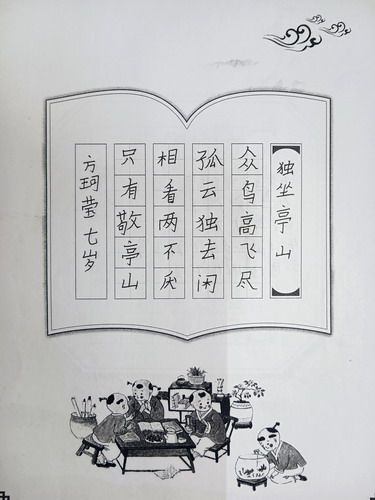 独坐亭山
众鸟高飞尽
孤云独去闲
相看两不厌
只有敬亭山
方珂莹 七岁